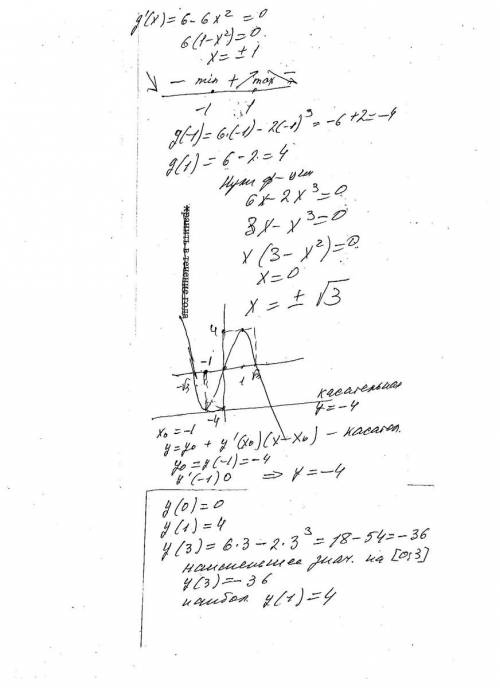 y'(x) = 6 - 6x² = 0
6(1-x²) = 0
x = ±1
- min + max -
-1 1
y(-1) = 6·(-1) - 2(-1)³ = -6+2 = -4
y(1) = 6 - 2 = 4
Нули ф-ции
6x - 2x³ = 0
3x - x³ = 0
x(3 - x²) = 0
x = 0
x = ± √3
хранить в течение года
4
-√3 -1 1 √3
-4
касательная
y = -4
x₀ = -1
y = y₀ + y'(x₀)(x-x₀) - касател.
y₀ = y(-1) = -4
y'(-1) 0 ⇒ y = -4
y(0) = 0
y(1) = 4
y(3) = 6·3 - 2·3³ = 18 - 54 = -36
наименьшее знач. на [0;3]
y(3) = -36
наибол. y(1) = 4